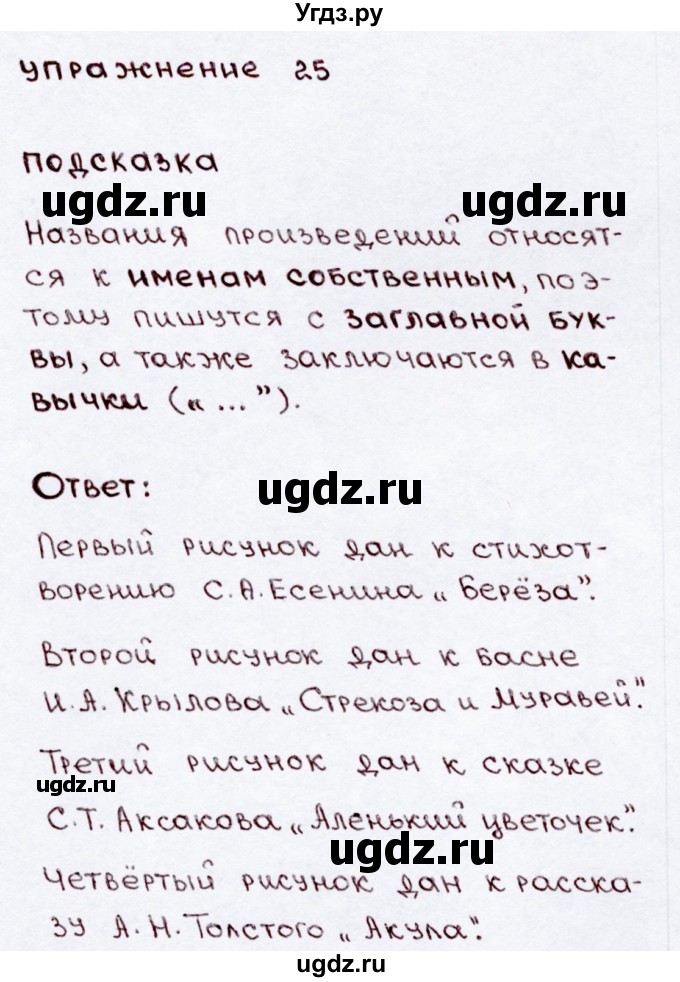 Угдз.ру
упражнение 25
подсказка
ugdz.ru ugdz.ru
Названия произведений относят-
ся к именам собственным, поэ-
тому пишутся с заглавной бук-
вы, а также заключаются в ка-
вычки („ ... ”).
Ответ:
ugdz.ru
Первый рисунок дан к стихот-
ворению С.А.Есенина „ Берёза”.
Второй рисунок дан к басне
И.А.Крылова „Стрекоза и Муравей”.
Третий рисунок дан к сказке
ugdz.ru
С.Т.Аксакова „Аленький цветочек”.
ugdz.ru
Четвёртый рисунок дан к расска-
зу А.Н.Толстого „ Акула”.
ugdz.ru